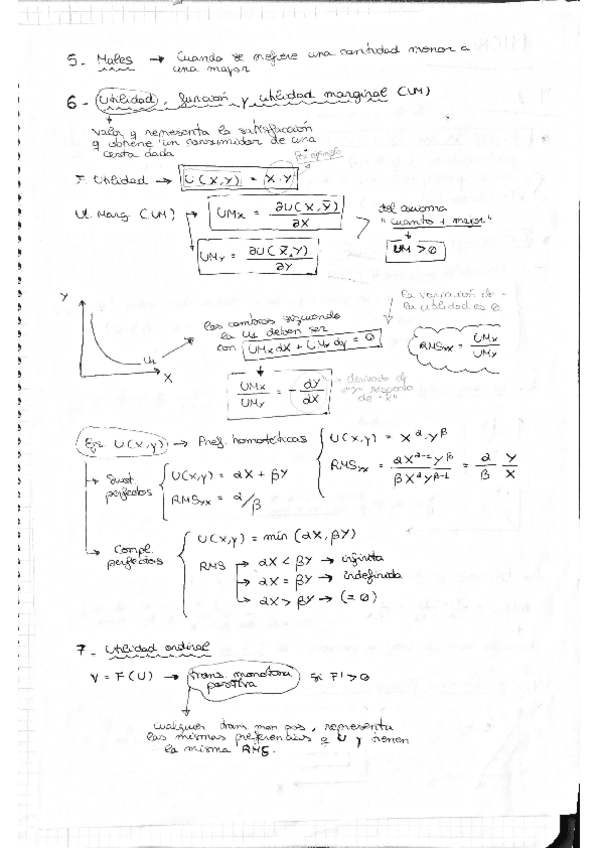 5- Males → Cuando se prefiere una cantidad menor a
una mayor
6- Utilidad, función y utilidad marginal (UM)
valor q representa la satisfacción
q obtiene un consumidor de una
cesta dada
Por ejemplo
F. Utilidad → U(X,Y) = X·Y
Ut. Marg. (UM) → UMx = ∂U(X,Ȳ)/∂X
UMy = ∂U(X̄,Y)/∂Y
del axioma
"cuanto + mejor"
UM > 0
Y
X
los cambios
la deben ser
con UMx dX + UMy dy = 0
la variación de
la utilidad es 0
RMSyx = UMx/UMy
UMx/UMy = - dY/dX
derivada de
"Y" respecto
de "X"
Ejs. U(x,y) → Pref. homotéticas
U(x,y) = X^α·Y^β
RMSyx = αX^α-1 Y^β / βX^α Y^β-1 = α/β Y/X
Sust. perfectos
U(x,y) = αX + βY
RMSyx = α/β
Compl. perfectos
U(x,y) = mín (αX, βY)
RMS → αX < βY → infinita
→ αX = βY → indefinida
→ αX > βY → (= 0)
7- Utilidad ordinal
V = F(U) → trans. monótona positiva si F' > 0
cualquier tran mon pos, representa
las mismas preferencias q U y tienen
la misma RMS.